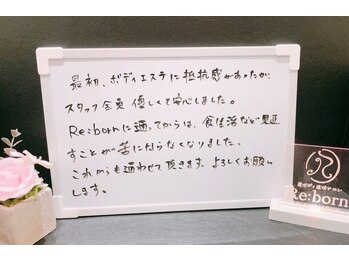 最初、ボディエステに抵抗感があったが、
スタッフ全員優しくて安心しました。
Re:bornに通ってからは、食生活など見直
すことが苦にならなくなりました。
これからも通わせて頂きます。よろしくお願い
します。
Re:born